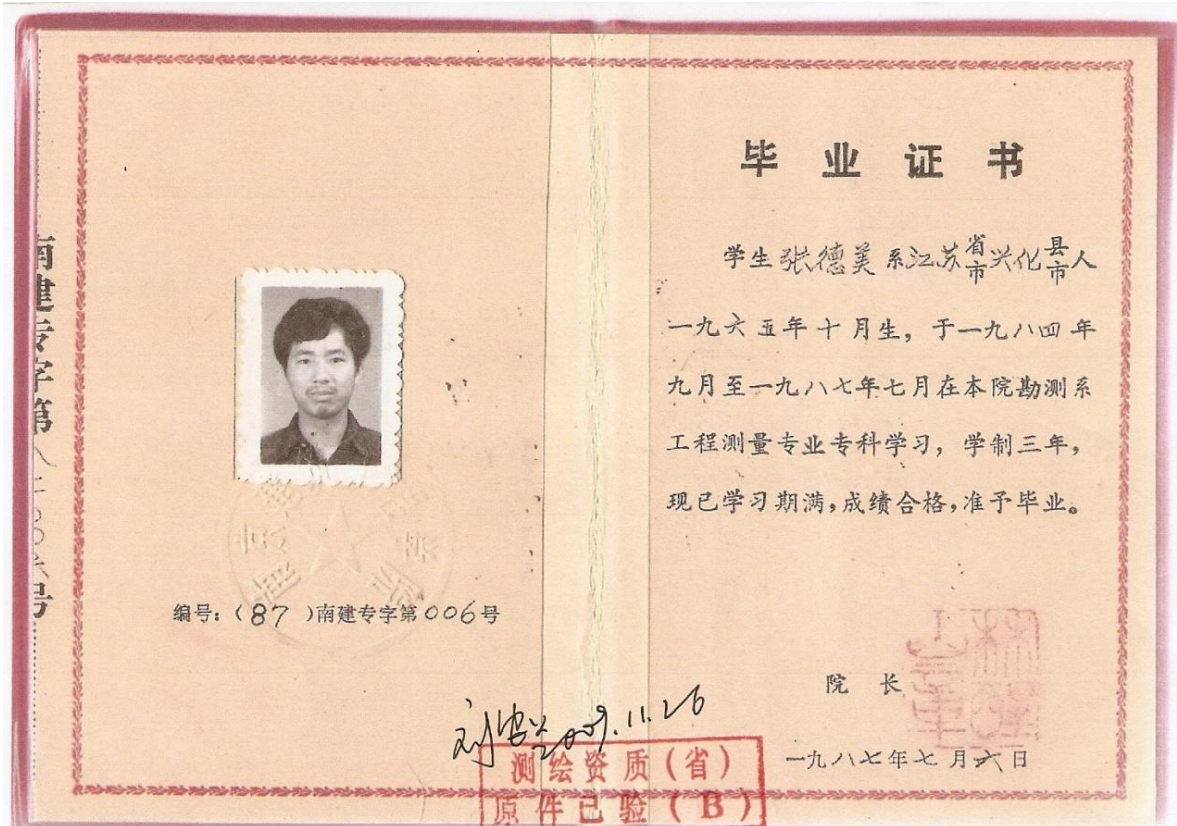 南建专字第八七〇〇六号
编号:(87)南建专字第006号
毕业证书
学生张德美系江苏省市兴化县市人
一九六五年十月生,于一九八四年
九月至一九八七年七月在本院勘测系
工程测量专业专科学习,学制三年,
现已学习期满,成绩合格,准予毕业。
院长
一九八七年七月六日
2009.11.26
测绘资质(省)
原件已验(B)